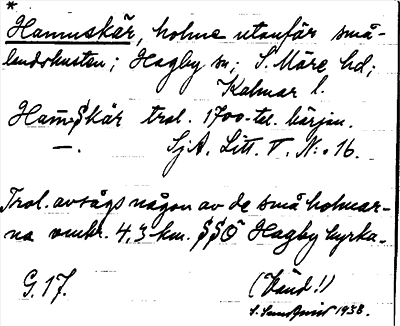 *
Hamnskär, holme utanför små-
landskusten; Hagby sn; S. Möre hd;
Kalmar l.
Ham̄skär trol. 1700-tal. början.
—. SjA. Litt. T. N:o 16.
Trol. avsågs någon av de små holmar-
na omkr. 4,3 km. SSÖ Hagby kyrka.
G. 17. (Vänd!)
S. Sundqvist 1938.